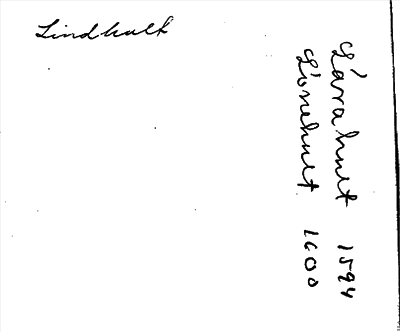 Lindhult
Lärahult 1594
Lönehult 1600